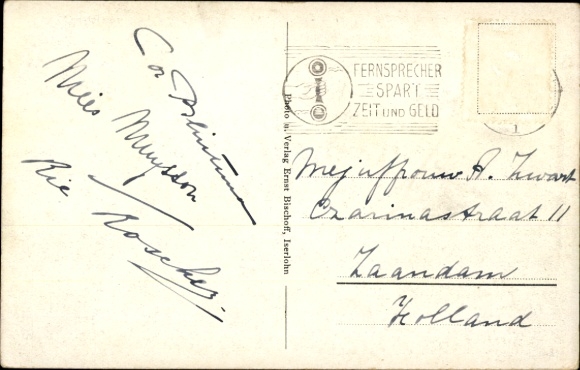 Cor
Mies
Rie
Photo u. Verlag Ernst Bischoff, Iserlohn
FERNSPRECHER
SPART
ZEIT UND GELD
1
Mejuffrouw A. Zwart
Czarinastraat 11
Zaandam
Holland